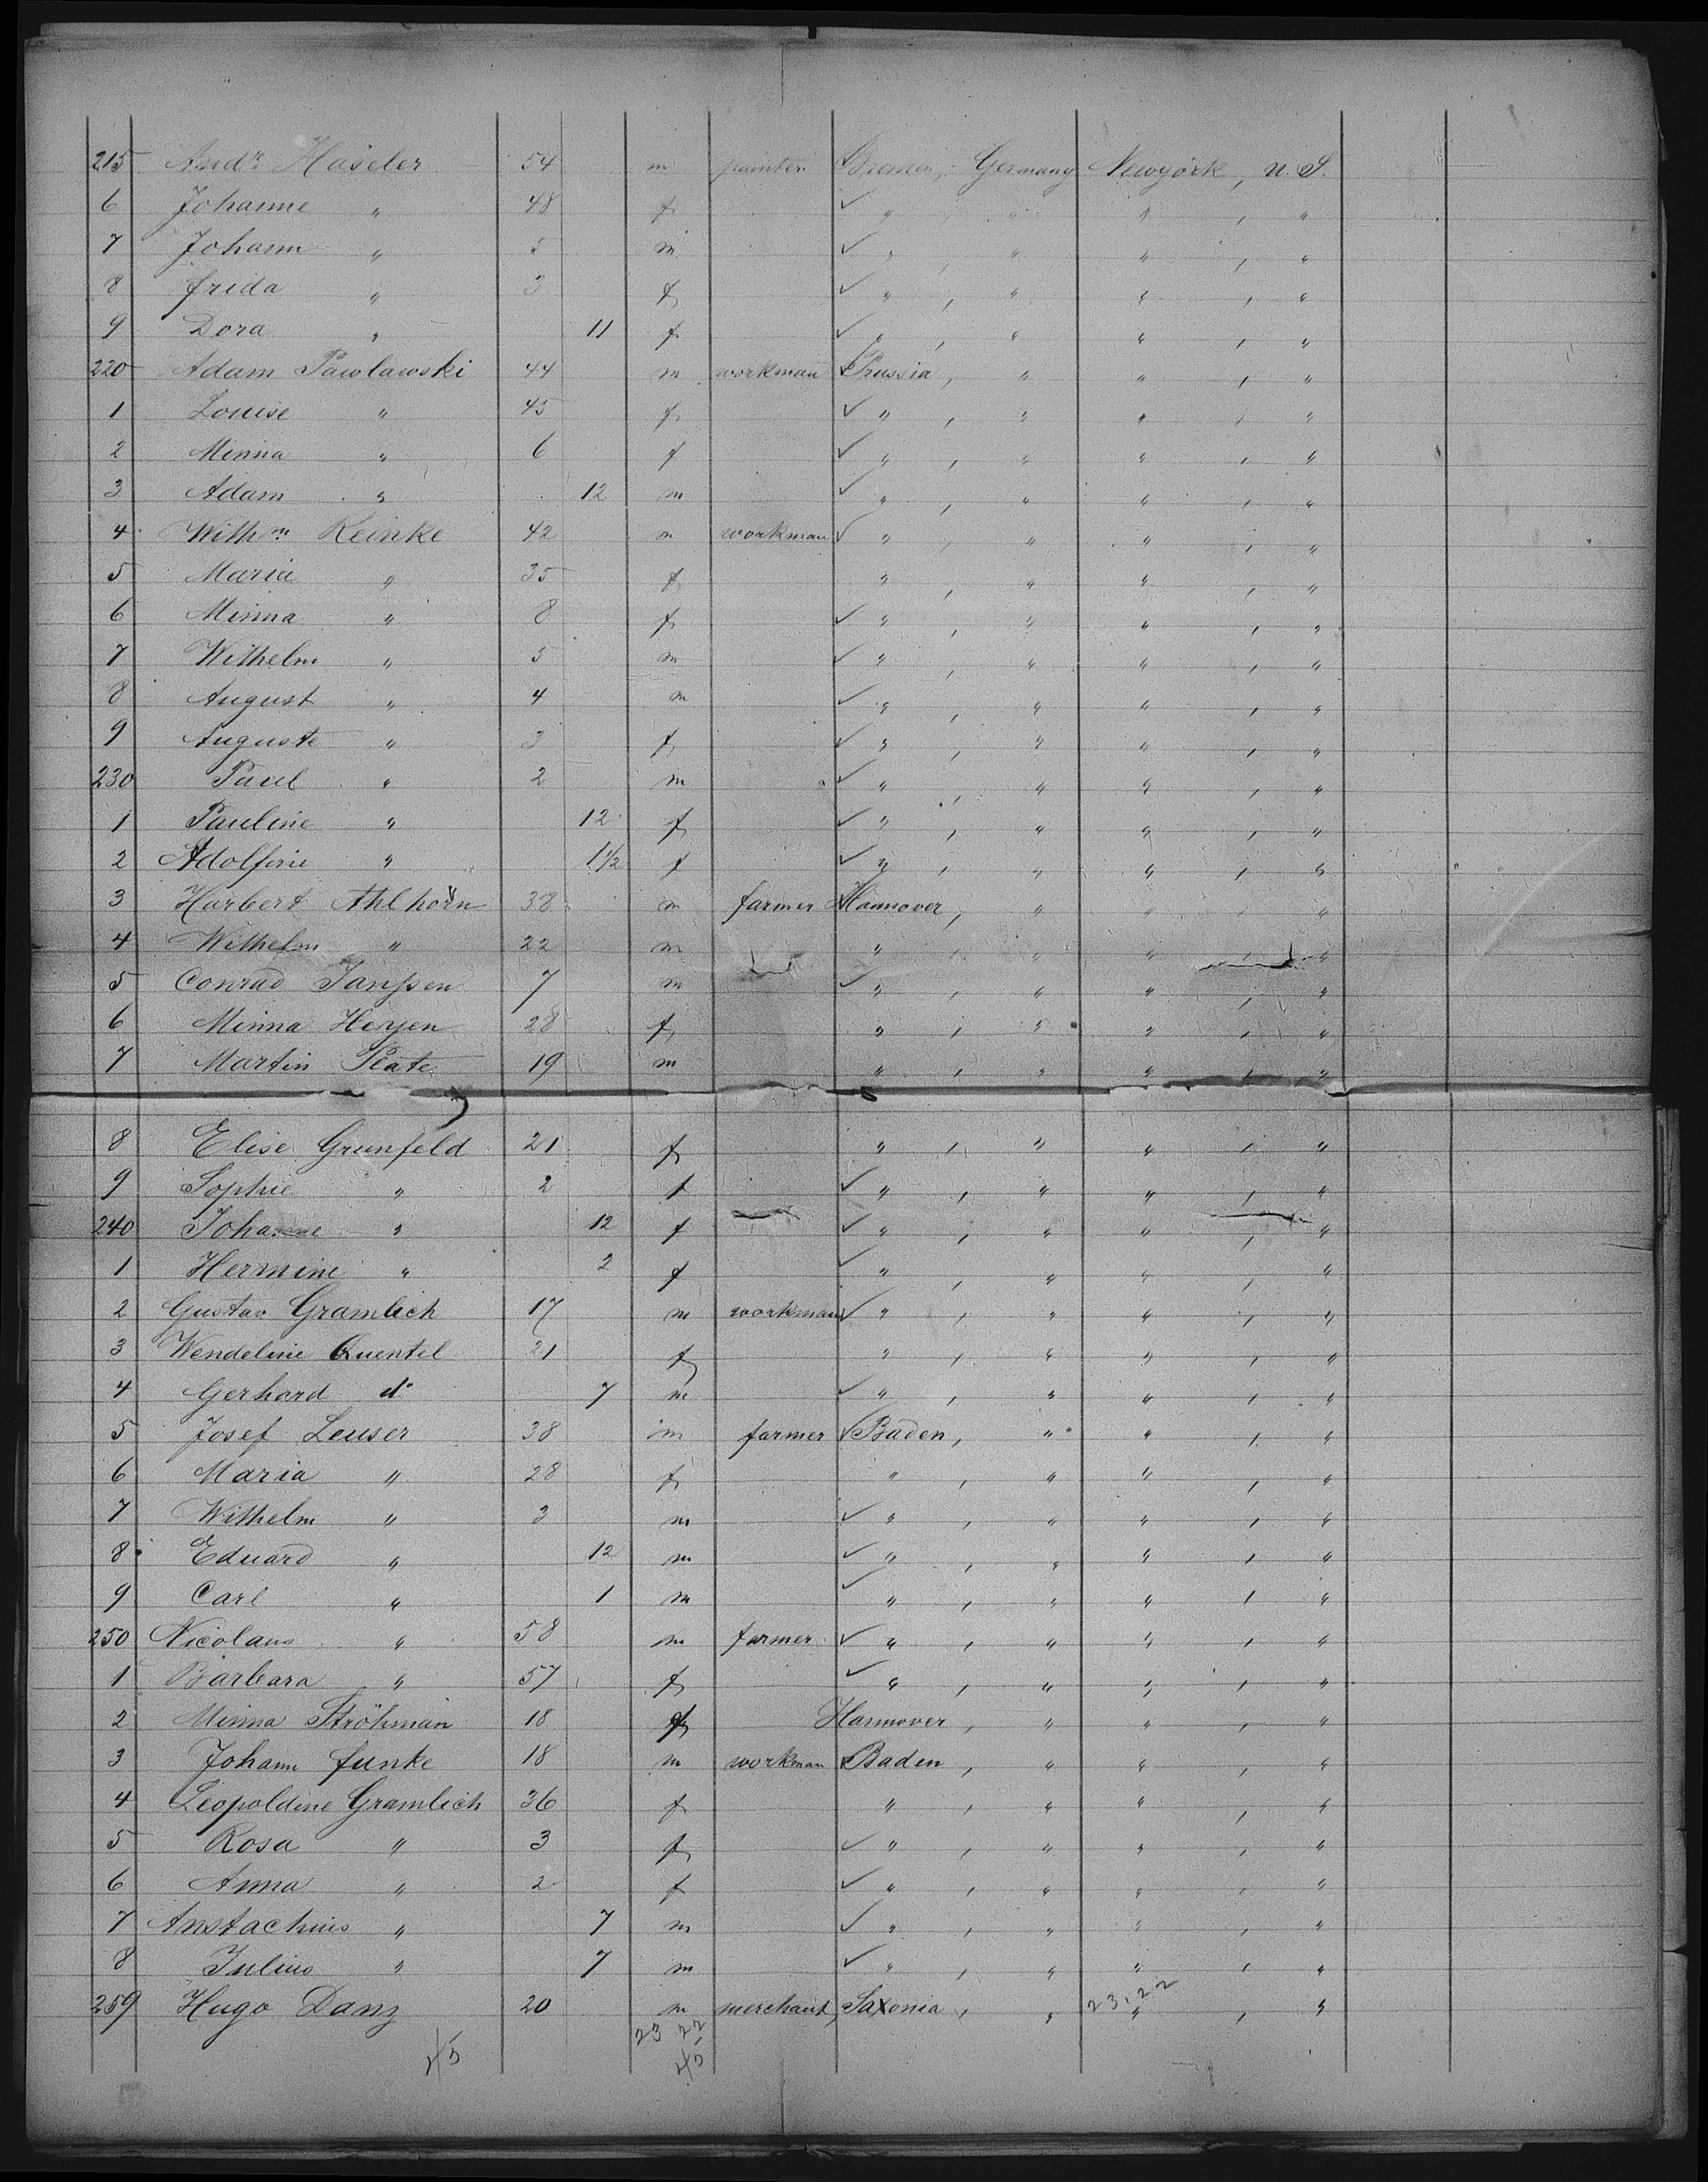 215 Andr. Häseler 54 m painter Bremen, Germany Newyork, U. S.
6 Johanne " 48 f " , " " , "
7 Johann " 5 m " , " " , "
8 Frida " 3 f " , " " , "
9 Dora " 11 f " , " " , "
220 Adam Pawlawski 44 m workman Prussia, " " , "
1 Louise " 45 f " , " " , "
2 Minna " 6 f " , " " , "
3 Adam " 12 m " , " " , "
4 Wilhm Reinke 42 m workman " , " " , "
5 Maria " 35 f " , " " , "
6 Minna " 8 f " , " " , "
7 Wilhelm " 5 m " , " " , "
8 August " 4 m " , " " , "
9 Auguste " 3 f " , " " , "
230 Paul " 2 m " , " " , "
1 Pauline " 12 f " , " " , "
2 Adolfine " 1 1/2 f " , " " , "
3 Harbert Ahlhorn 38 m farmer Hannover, " " , "
4 Wilhelm " 22 m " , " " , "
5 Conrad Janssen 7 m " , " " , "
6 Minna Heyen 28 f " , " " , "
7 Martin Plate 19 m " , " " , "
8 Elise Grunfeld 21 f " , " " , "
9 Sophie " 2 f " , " " , "
240 Johanne " 12 f " , " " , "
1 Hermine " 2 f " , " " , "
2 Gustav Gramlich 17 m workman " , " " , "
3 Wendeline Quentel 21 f " , " " , "
4 Gerhard do 7 m " , " " , "
5 Josef Leuser 38 m farmer Baden, " " , "
6 Maria " 28 f " , " " , "
7 Wilhelm " 3 m " , " " , "
8 Eduard " 12 m " , " " , "
9 Carl " 1 m " , " " , "
250 Nicolaus " 58 m farmer " , " " , "
1 Barbara " 57 f " , " " , "
2 Minna Ströhman 18 f Hannover, " " , "
3 Johann Funke 18 m workman Baden, " " , "
4 Leopoldine Gramlich 36 f " , " " , "
5 Rosa " 3 f " , " " , "
6 Anna " 2 f " , " " , "
7 Anstachius " 7 m " , " " , "
8 Julius " 7 m " , " " , "
259 Hugo Danz 20 m merchant, Saxonia, " " , "
23,22
23 22
45 45